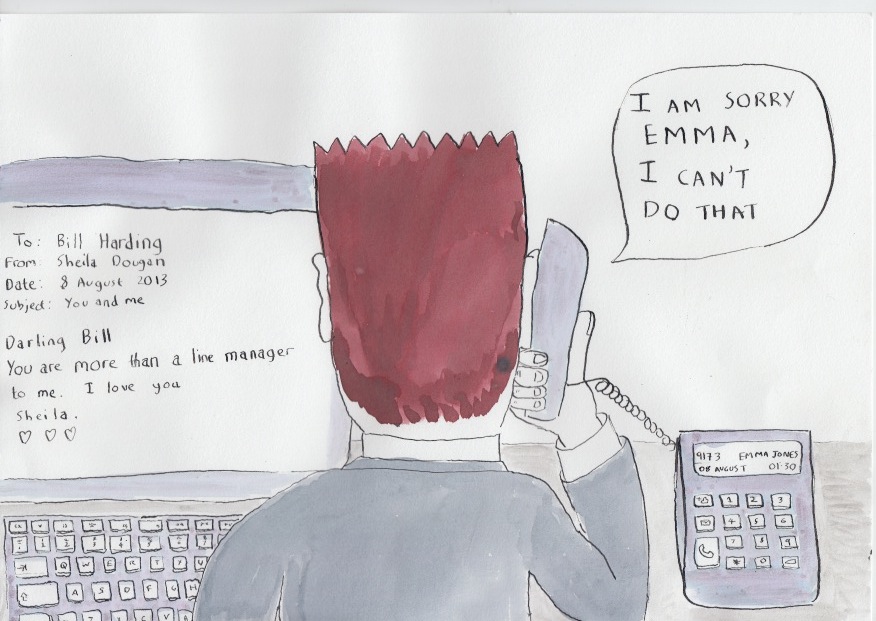 To: Bill Harding
From: Sheila Dougan
Date: 8 August 2013
Subject: You and me
Darling Bill
You are more than a line manager
to me. I love you
Sheila.
I AM SORRY
EMMA,
I CAN'T
DO THAT
9173 EMMA JONES
08 AUGUST 01:30
1 2 3
4 5 6
7 8 9
* 0
Q W E R T
A S D F G H